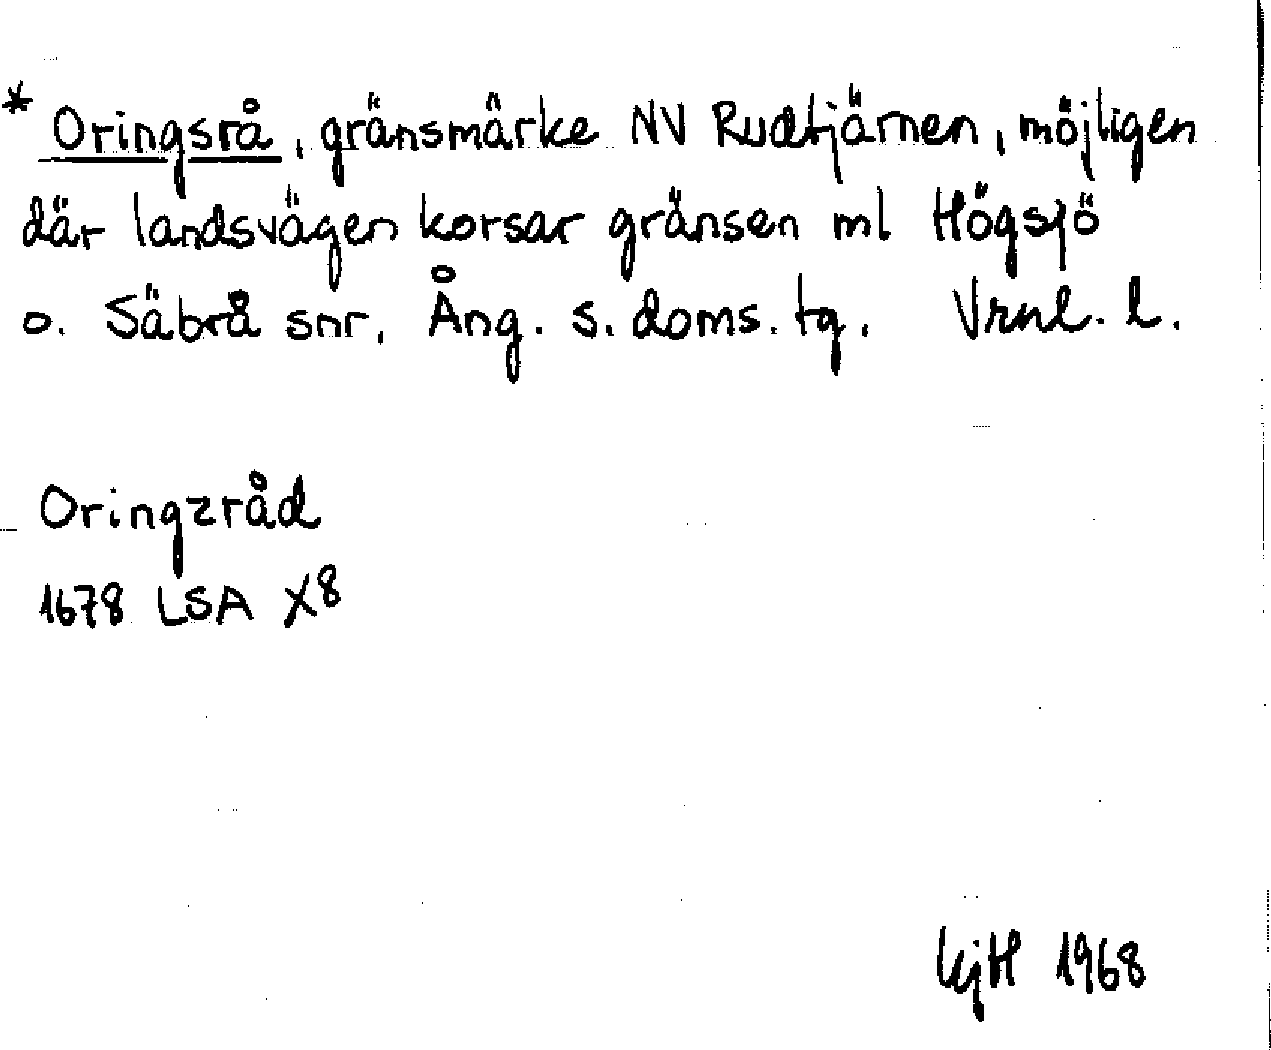 * Oringsrå, gränsmärke NV Rudtjärnen, möjligen
där landsvägen korsar gränsen ml Högsjö
o. Säbrå snr, Ång. s. doms. tg. Vrnl. l.
Oringzråd
1678 LSA X8
KjH 1968